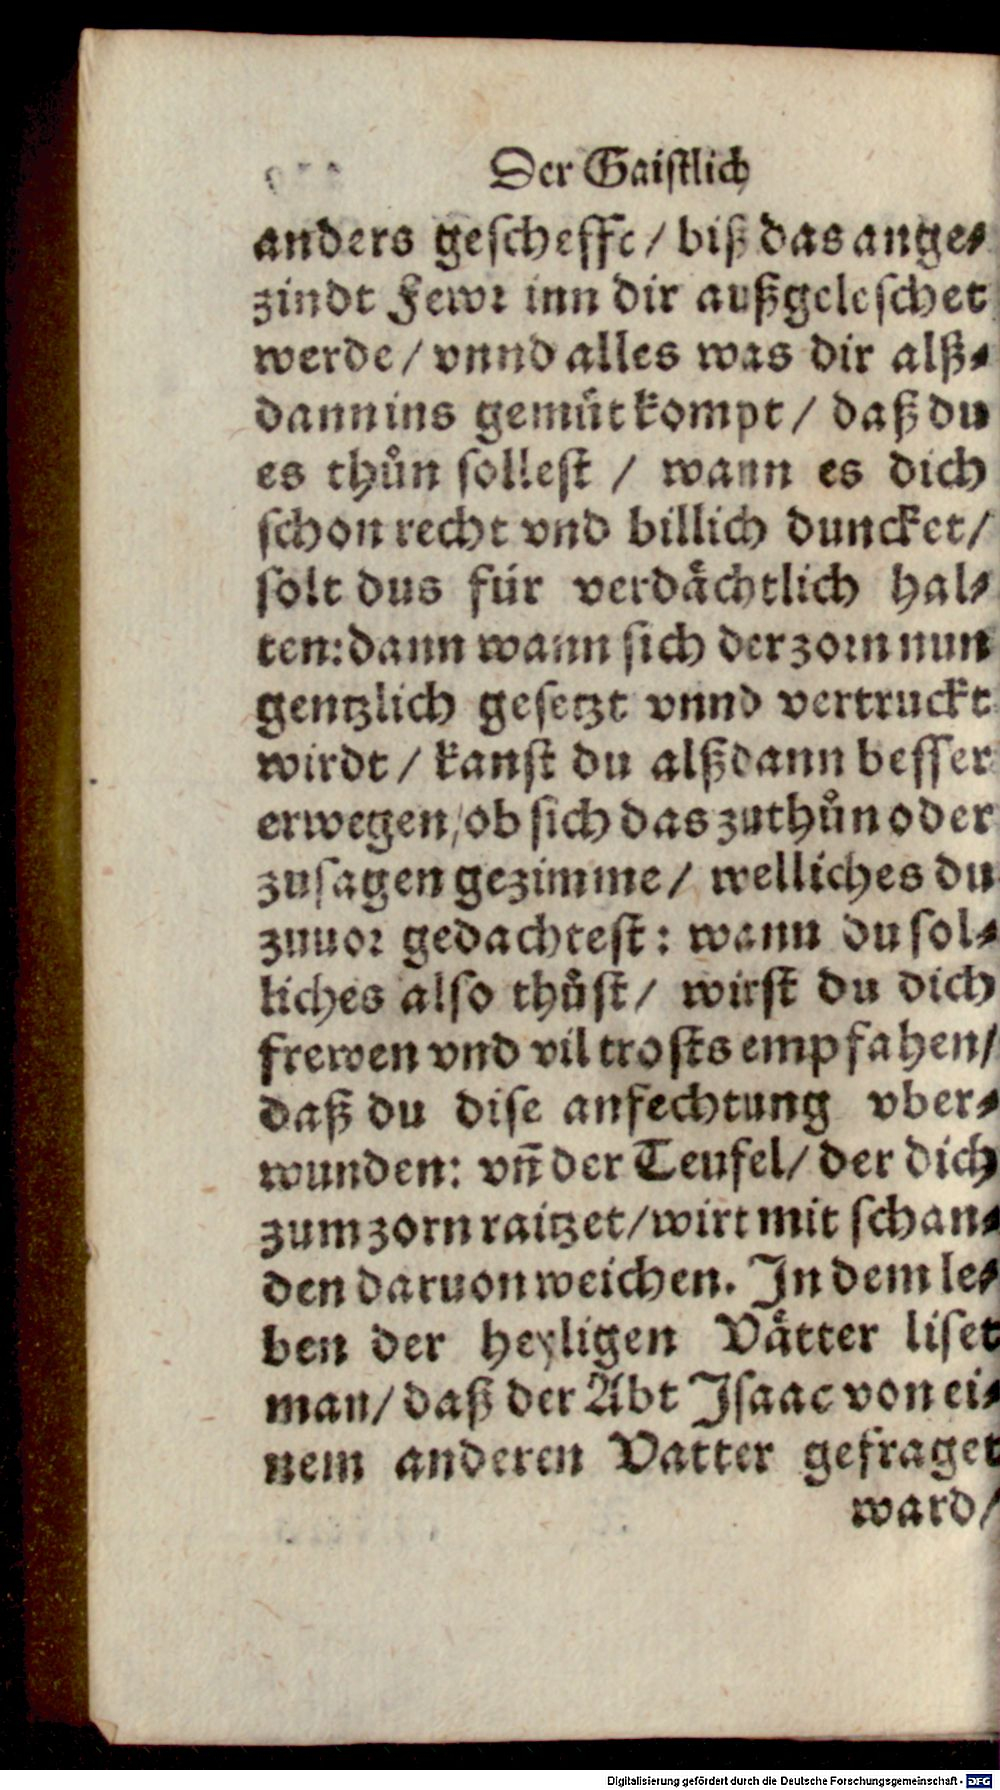 Der Gaistlich
anders gescheffe / biß das ange⸗
zindt Fewr inn dir außgeleschet
werde / vnnd alles was dir alß⸗
dann ins gemüt kompt / daß du
es thůn sollest / wann es dich
schon recht vnd billich duncket /
solt dus für verdächtlich hal⸗
ten: dann wann sich der zorn nun
gentzlich gesetzt vnnd vertruckt
wirdt / kanst du alßdann besser
erwegen / ob sich das zuthůn oder
zusagen gezimme / welliches du
zuuor gedachtest: wann du sol⸗
liches also thůst / wirst du dich
frewen vnd vil trosts empfahen /
daß du dise anfechtung vber⸗
wunden: vñ der Teufel / der dich
zum zorn raitzet / wirt mit schan⸗
den daruon weichen. In dem le⸗
ben der heyligen Vätter liset
man / daß der Abt Isaac von ei⸗
nem anderen Vatter gefraget
ward /
Digitalisierung gefördert durch die Deutsche Forschungsgemeinschaft - DFG